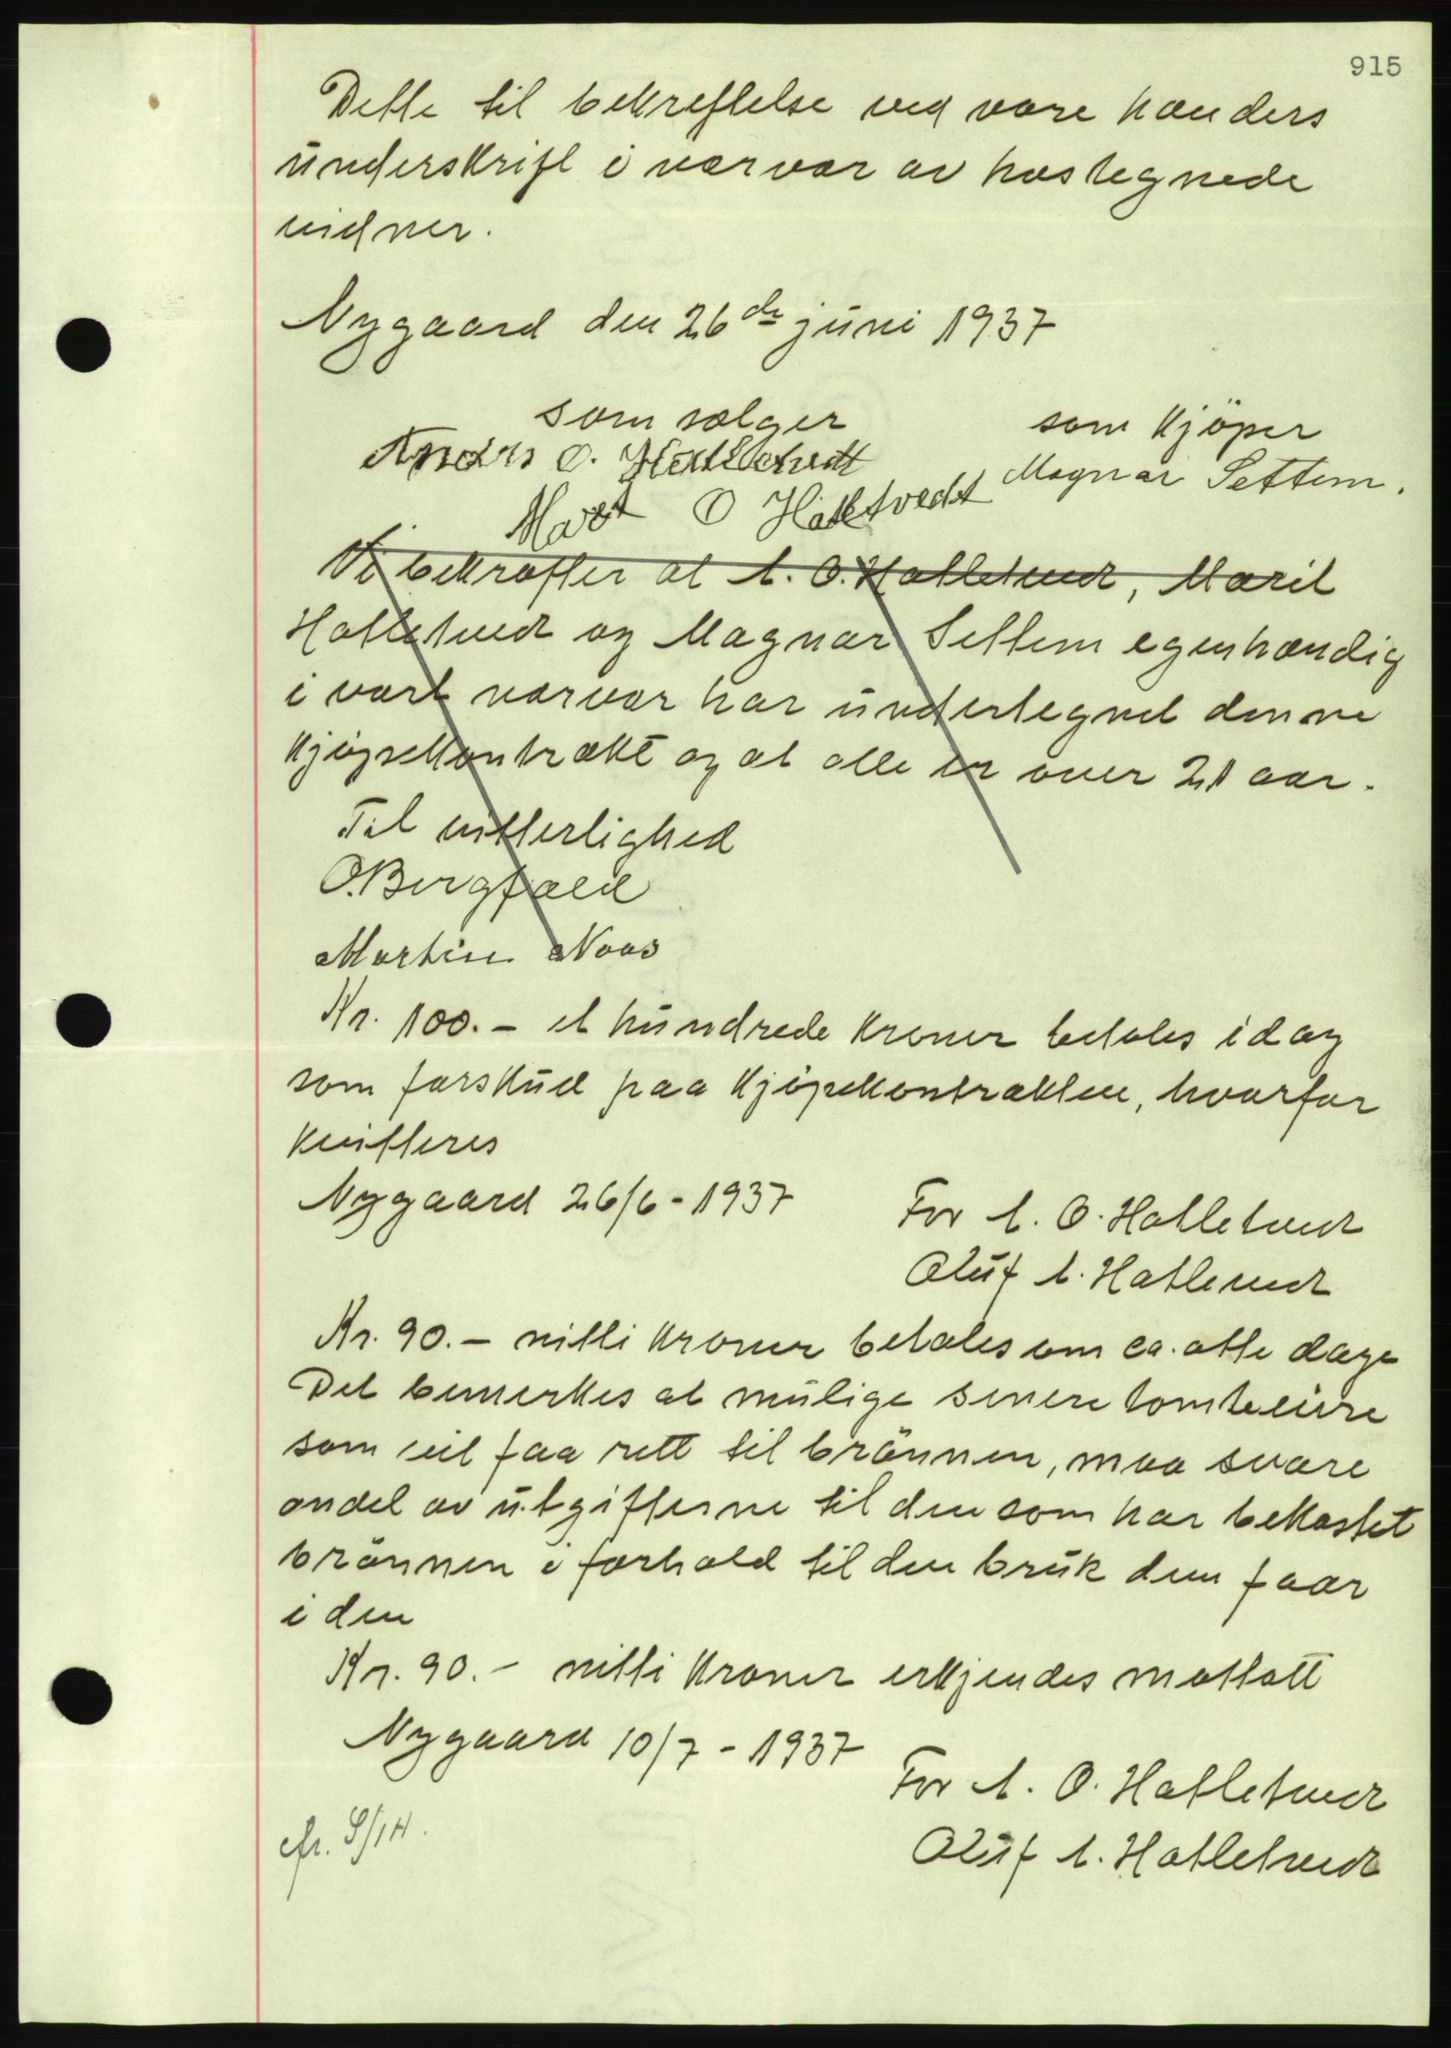 915
Dette til bekreftelse ved vore hænders
underskrift i nærvær av hostegnede
vidner.
Nygaard den 26de juni 1937
som sælger som kjöper
Anders O. Hatletvedt Magnar Settem.
Marit O Hatletvedt
Vi bekræfter at A. O. Hatletvedt, Marit
Hatletvedt og Magnar Settem egenhændig
i vort nærvær har undertegnet denne
kjöpekontrakt og at alle er over 21 aar.
Til vitterlighed
O. Bergfald
Martin Noos
Kr. 100.- et hundrede kroner betales idag
som forskud paa kjöpekontrakten, hvorfor
kvitteres
Nygaard 26/6-1937 For A. O. Hatletvedt
Oluf A. Hatletvedt
Kr. 90.- nitti kroner betales om ca. otte dage
Det bemerkes at mulige senere tomteeiere
som vil faa rett til brönnen, maa svare
andel av utgifterne til den som har bekostet
brönnen i forhold til den bruk dem faar
i den
Kr. 90.- nitti kroner erkjendes mottatt
Nygaard 10/7-1937
For A. O. Hatletvedt
cfr. 9/14. Oluf A. Hatletvedt